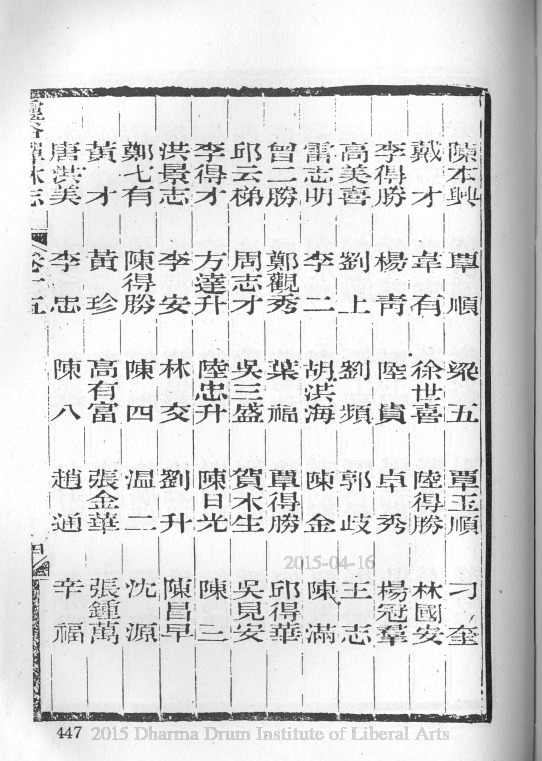 陳本興 覃順 梁五 覃玉順 刁奎
戴才 韋有 徐世喜 陸得勝 林國安
李得勝 楊靑 陸貴 卓秀 楊冠羣
高美喜 劉上 劉頻 郭歧 王志
雷志明 李二 胡洪海 陳金 陳滿
曾二勝 鄭觀秀 葉福 覃得勝 邱得華
邱云梯 周志才 吳三盛 賀木生 吳見安
李得才 方達升 陸忠升 陳日光 陳三
洪景志 李安 林交 劉升 陳昌早
鄭七有 陳得勝 陳四 温二 沈源
黃才 黃珍 高有富 張金華 張鍾萬
唐洪美 李忠 陳八 趙通 辛福
靈谷禪林志 卷十五 四
2015-04-16
447 2015 Dharma Drum Institute of Liberal Arts